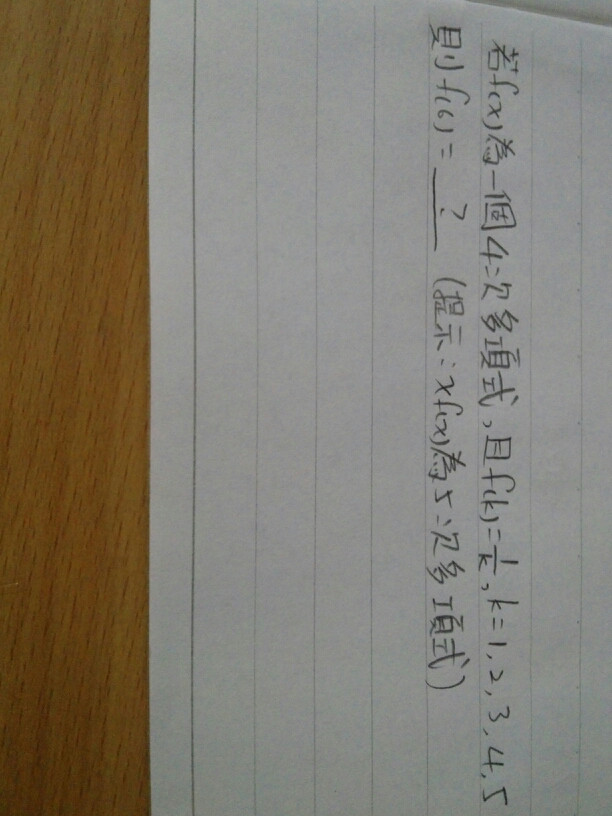 若f(x)為一個4次多項式,且f(k)=1/k, k=1,2,3,4,5
則f(6)=__?__ (提示:xf(x)為5次多項式)